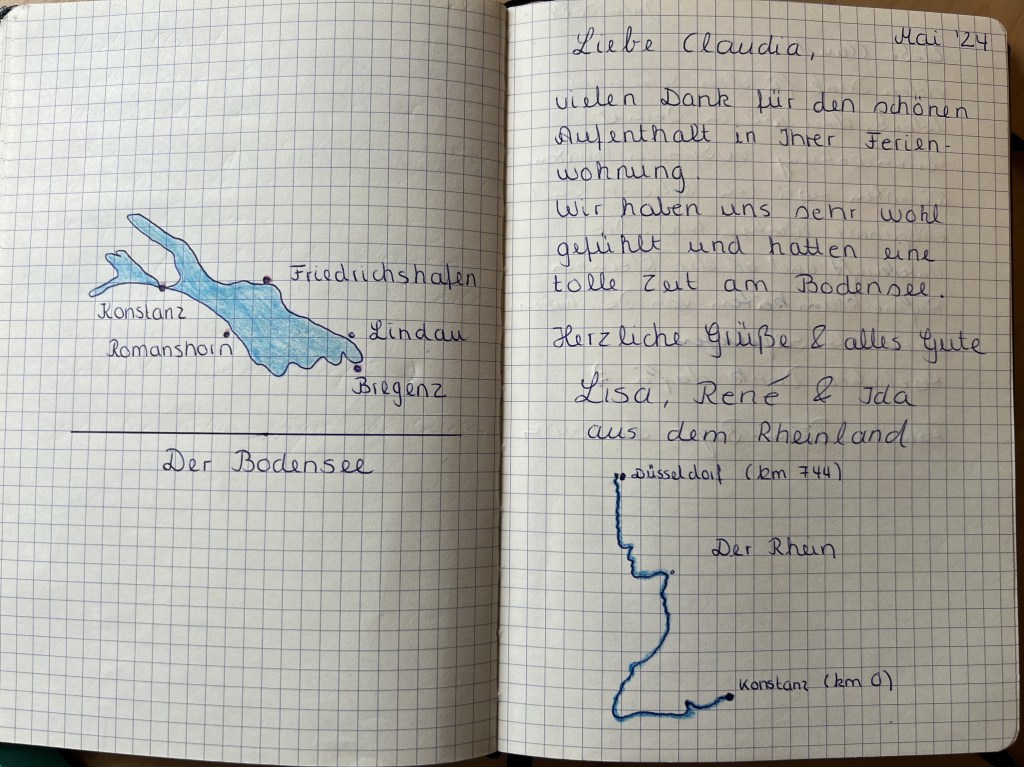 Friedrichshafen
Konstanz
Lindau
Romanshorn
Bregenz
Der Bodensee
Mai '24
Liebe Claudia,
vielen Dank für den schönen
Aufenthalt in Ihrer Ferien-
wohnung.
Wir haben uns sehr wohl
gefühlt und hatten eine
tolle Zeit am Bodensee.
Herzliche Grüße & alles Gute
Lisa, René & Ida
aus dem Rheinland
Düsseldorf (km 744)
Der Rhein
Konstanz (km 0)